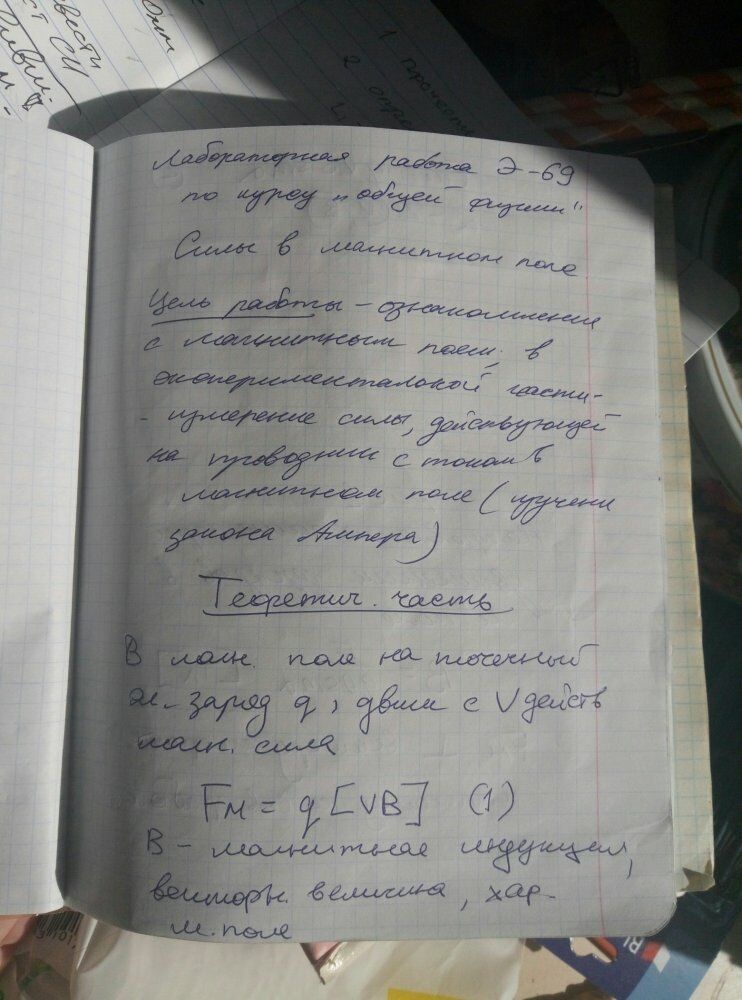 вести
ст СИ
1 Прочесть
2 опре
Лабораторная работа Э-69
по курсу „общей физики"
Силы в магнитном поле
Цель работы - ознакомление
с магнитным полем; в
экспериментальной части-
- измерение силы, действующей
на проводник с током в
магнитном поле (изучение
закона Ампера)
Теоретич. часть
В магн. поле на точечный
эл. заряд q, движ с V действ
магн. сила
Fм = q [VB] (1)
В - магнитная индукция,
векторн. величина, хар-
м. поле